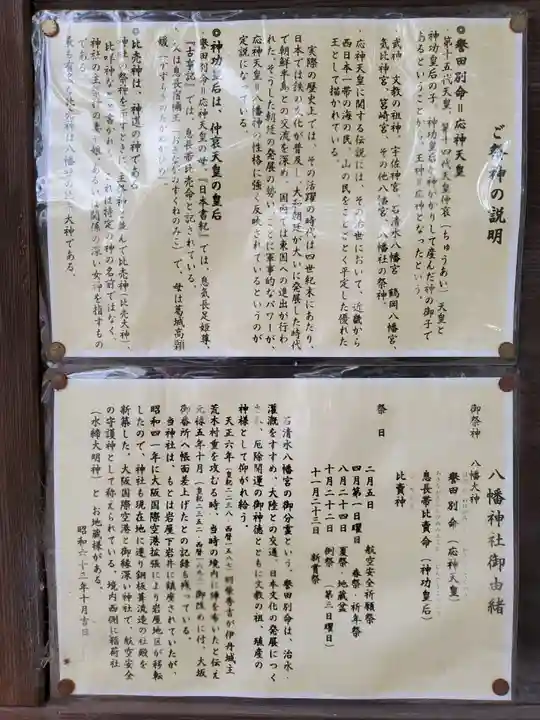 ご祭神の説明
◎誉田別命＝応神天皇
第十五代天皇、第十四代天皇仲哀（ちゅうあい）天皇と
神功皇后の子。神功皇后が神がかりして産んだ神の御子で
あるということから、王神＝応神となったという。
武神、文教の祖神、宇佐神宮、石清水八幡宮、鶴岡八幡宮、
気比神宮、筥崎宮、その他八幡宮、八幡社の祭神。
応神天皇に関する伝説には、その治世において、近畿から
西日本一帯の海の民、山の民をことごとく平定した優れた
王として描かれている。
実際の歴史上では、その活躍の時代は四世紀末にあたり、
日本では鉄の文化が普及し、大和朝廷が大いに発展した時代
で朝鮮半島との交流を深め、国内では東国への進出が行わ
れた。そうした朝廷の発展の勢い、ことに軍事的なパワーが、
応神天皇＝八幡神の性格に強く反映されているというのが
定説になっている。
◎神功皇后は、仲哀天皇の皇后
誉田別命＝応神天皇の母。『日本書紀』では、息気長足姫尊、
『古事記』では、息長帯比売命と記されている。
父は息長宿禰王（おきながのすくねのみこ）で、母は葛城高顙
媛（かずらきのたかぬかひめ）
◎比売神は、神道の神である
神社の祭神を示すときに、主祭神と並んで比売神（比売大神）、
比咩神などと書かれる。これは特定の神の名前ではなく、
神社の主祭神の妻や娘、あるいは関係の深い女神を指すもの
である。
最も有名な比売神は八幡社の比売大神である。
八幡神社御由緒
御祭神
八幡大神
誉田別命（応神天皇）
息長帯比賣命（神功皇后）
比賣神
祭日
二月五日 航空安全祈願祭
四月第一日曜日 春祭・祈年祭
八月二十四日 夏祭・地蔵盆
十月二十二日 例祭（第三日曜日）
十一月二十三日 新嘗祭
石清水八幡宮の御分霊という。誉田別命は、治水・
灌漑をすすめ、大陸との交通、日本文化の発展につく
され、厄除開運の御神徳とともに文教の祖、殖産の
神様として仰がれ給う。
天正六年（皇紀二二三八・西暦一五七八）羽柴秀吉が伊丹城主
荒木村重を攻むる時、当時の境内に陣を布いたと伝え
元禄五年十月（皇紀二三五二・西暦一六九二）御改めに付、大坂
御番所へ帳面差上げたとの記録も残っている。
当神社は、もとは岩屋下岩井に鎮座されていたが、
昭和四一年に大阪国際空港拡張により岩屋地区が移転
したので、神社も現在地に遷り銅板葺流造の社殿を
新築した、大阪国際空港と御縁深い神社で、航空安全
の守護神として称えられている。境内西側に稲荷社
（水締大明神）とお地蔵様がある。
昭和六十三年十月吉日